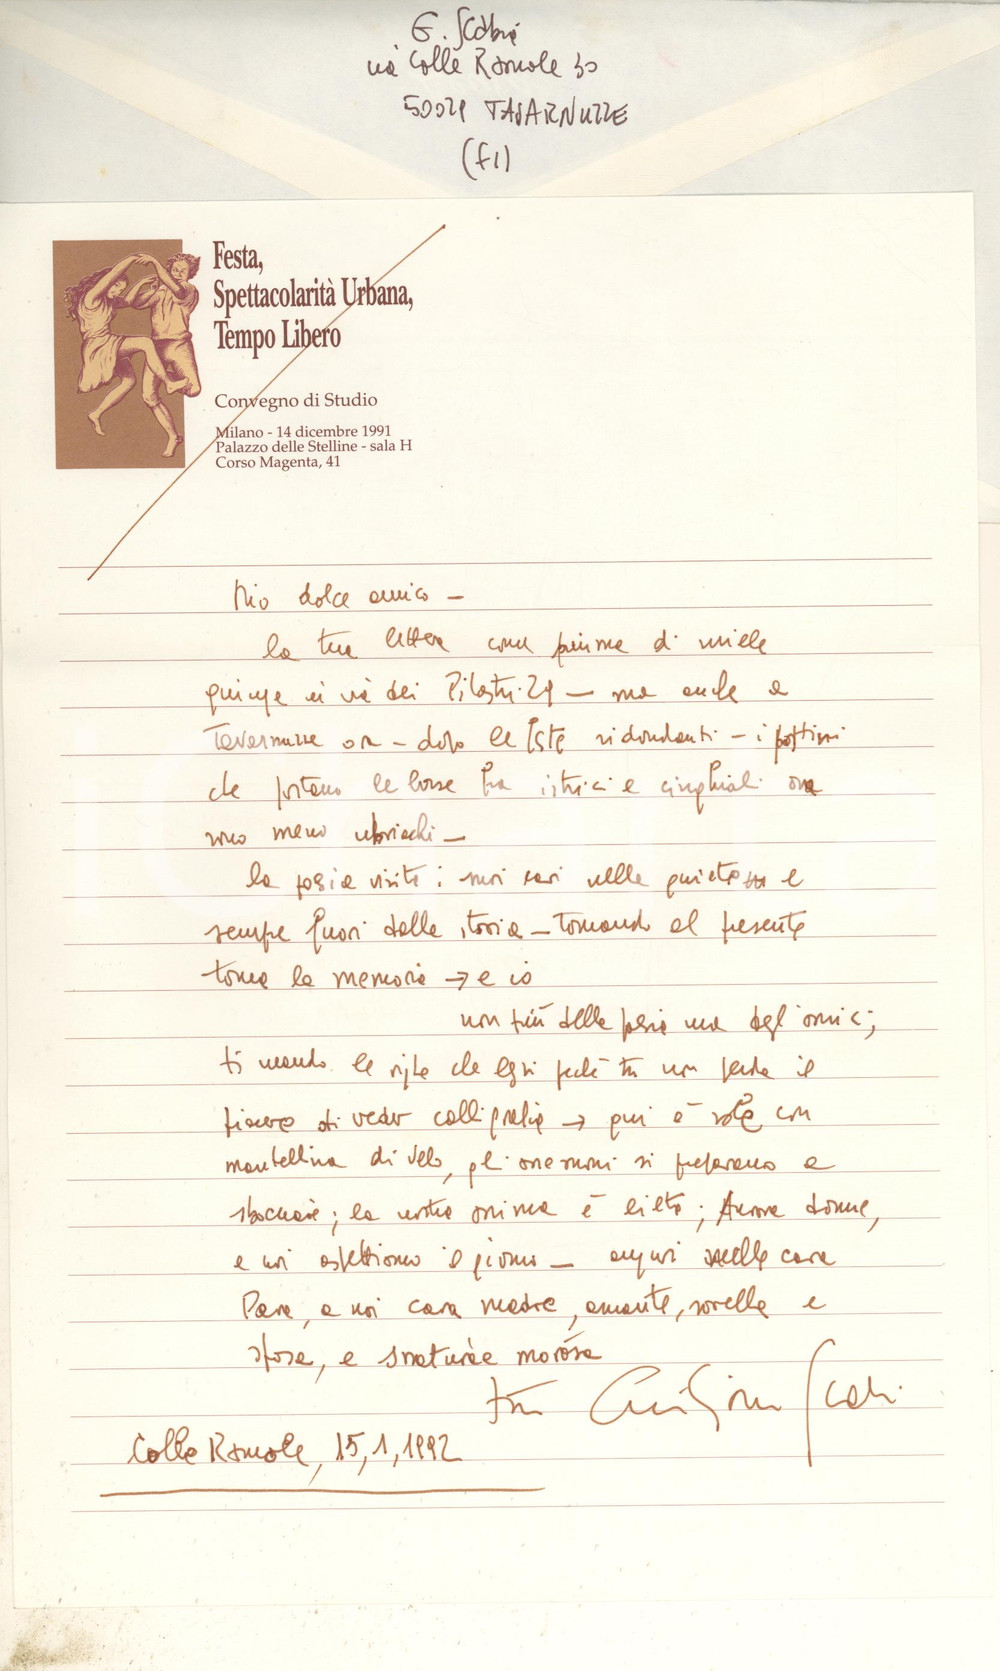 G. Scabia
via Colle Ramole 30
50029 TAVARNUZZE
(FI)
Festa,
Spettacolarità Urbana,
Tempo Libero
Convegno di Studio
Milano - 14 dicembre 1991
Palazzo delle Stelline - sala H
Corso Magenta, 41
Mio dolce amico -
la tua lettera come piuma di miele
giunge in via dei Pilastri 29 - ma anche a
Tavarnuzze ora - dopo le feste ridondanti - i postini
che portano le borse fra istrici e cinghiali ora
sono meno ubriachi -
la poesia visita i suoi cari nella quiete e
sempre fuori dalla storia - tornando al presente
torna la memoria → e io
non più della poesia ma degli amici;
ti mando le righe che ogni perché tu non perda il
piacere di veder calligrafia → qui è sole con
mantellina di velo, gli anemoni si preparano a
sbocciare; la nostra anima è lieta; Aurora dorme,
e noi aspettiamo il giorno - auguri nella cara
Pava, a noi cara madre, amante, sorella e
sposa, e snaturàe morósa
tuo Giuliano Scabia
Colle Ramole, 15, 1, 1992